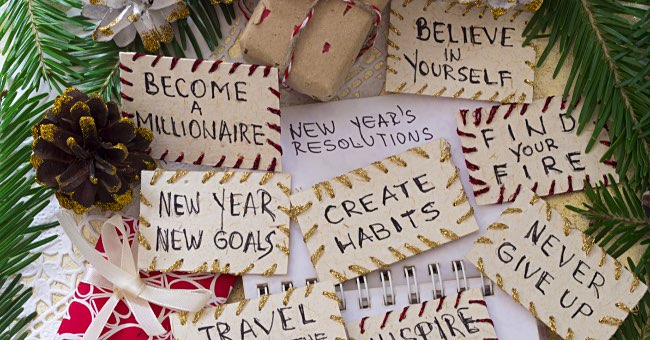 BELIEVE
IN
YOURSELF
BECOME
A
MILLIONAIRE
NEW YEAR'S
RESOLUTIONS
FIND
YOUR
FIRE
NEW YEAR
NEW GOALS
CREATE
HABITS
NEVER
GIVE UP
TRAVEL
INSPIRE